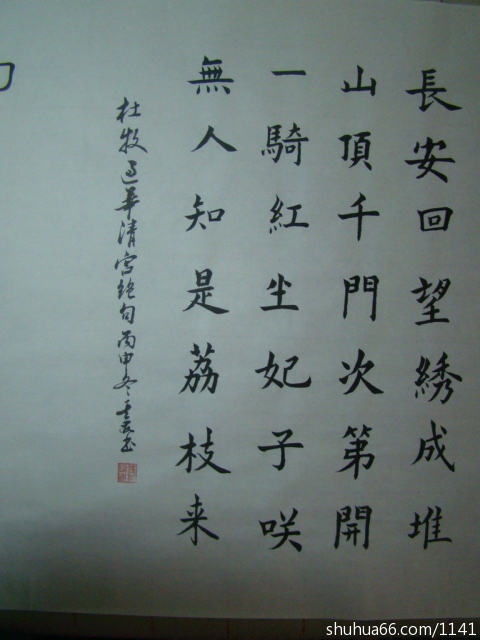 長安回望綉成堆
山頂千門次第開
一騎紅尘妃子咲
無人知是荔枝来
杜牧过華清宮絶句丙申冬
shuhua66.com/1141